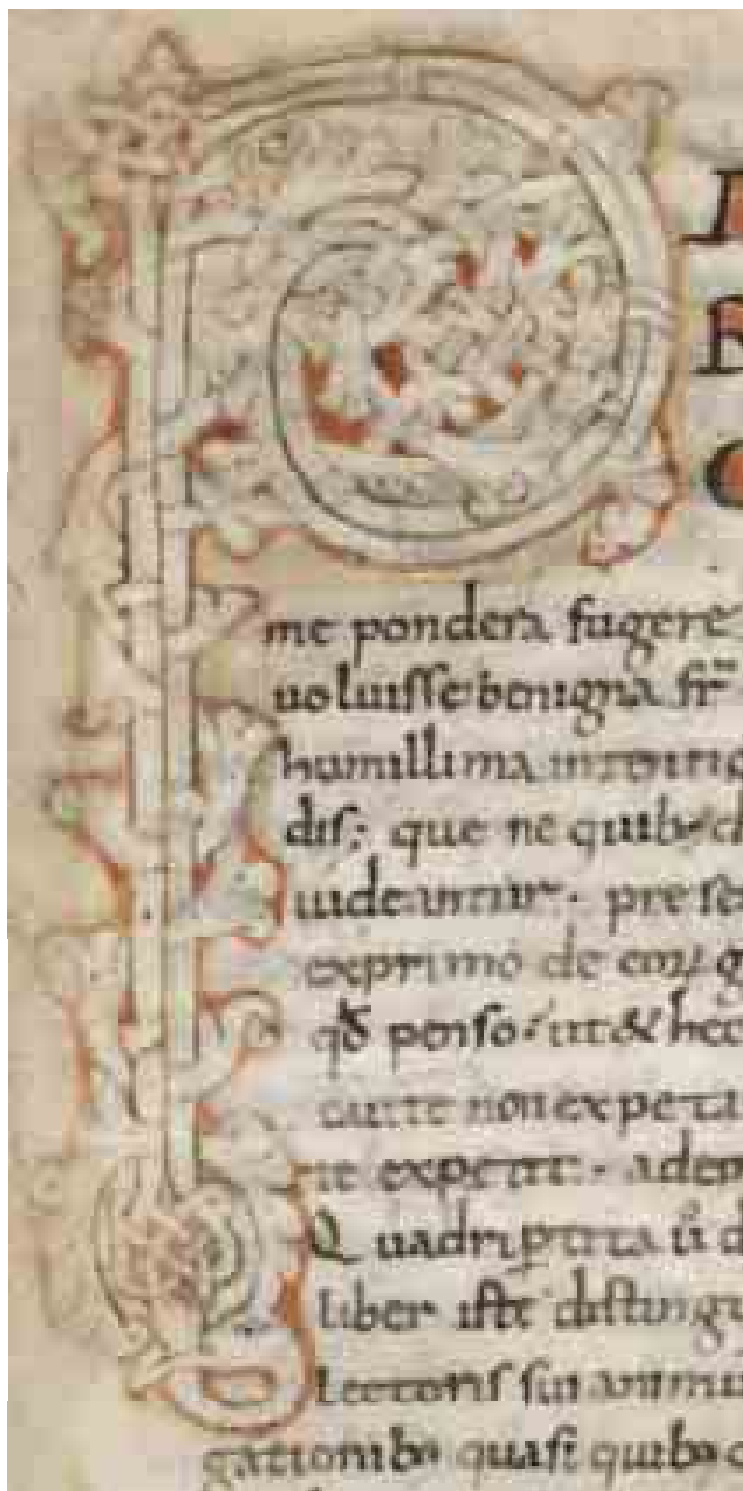 P
R
O
me pondera fugere
uoluisse benigna fr̄
humillima intentio
dis; que ne quibꝰ
uideantur · prese
exprimo de eoꝝ
qđ penso · ut & hec
tarte non expeta
te expetit · adem
Quadripꝑtita ū d
liber iste distingu
Lectoris sui animu
gationibꝰ quasi quibꝰ